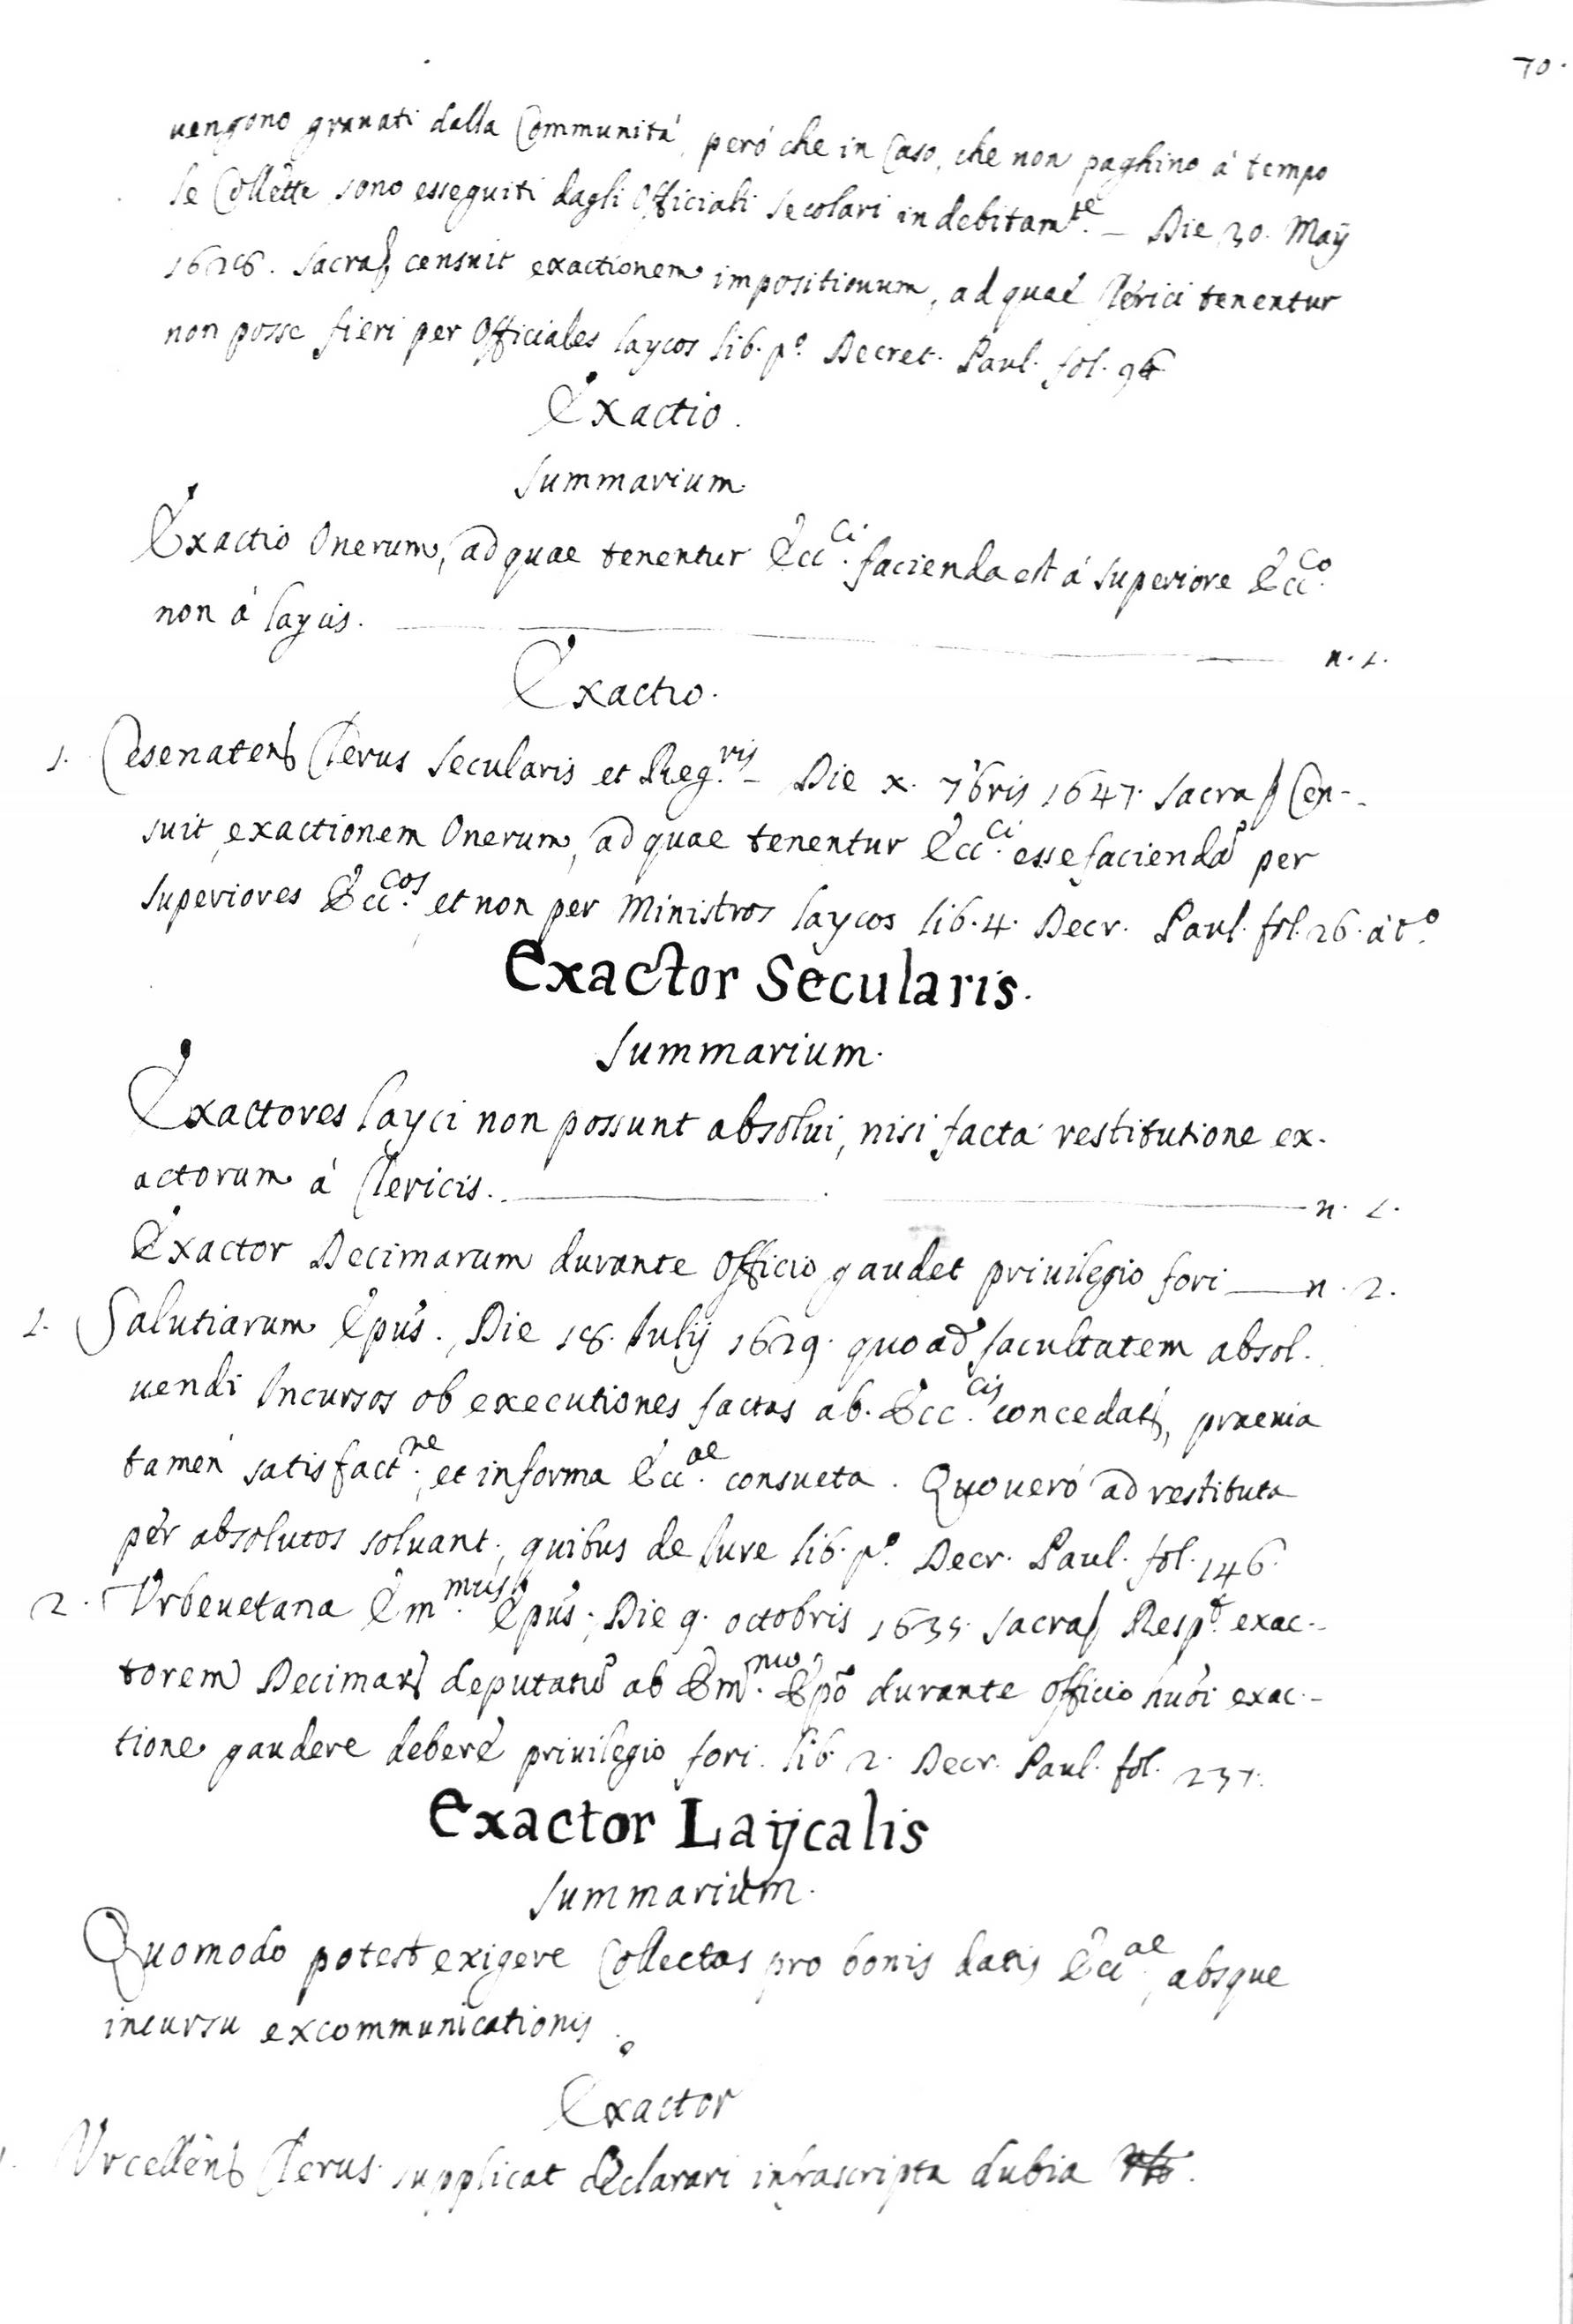 70.
uengono grauati dalla Communità, però che in Caso, che non paghino à tempo
le Collette sono esseguiti dagli Officiali secolari indebitam.te – Die 30. Maÿ
1626. sacra censuit exactionem impositionum, ad quae Clerici tenentur
non posse fieri per Officiales laycos lib. p.o Decret. Paul. fol. 96
Exactio.
Summarium
Exactio Onerum, ad quae tenentur Ecc.ci facienda est á superiore Ecc.co
non á laycis. n. 1.
Exactio.
1. Cesenatens Clerus secularis et Reg.ris – Die x. 7bris 1647. sacra Cen-
suit exactionem Onerum, ad quae tenentur Ecc.ci esse faciendã per
superiores Ecc.cos et non per Ministros laycos lib. 4. Decr. Paul. fol. 26. àt.o
Exactor Secularis.
Summarium.
Exactores layci non possunt absolui, nisi facta restitutione ex-
actorum á Clericis. n. 1.
Exactor Decimarum durante Officio gaudet priuilegio fori n. 2.
1. Salutiarum Epus. Die 18. Iulij 1629. quo ad facultatem absol-
uendi Incursos ob executiones factas ab. Ecc.cis concedat, praeuia
tamen satisfact.ne, et in forma Ecc.ae consueta. Quo uerò ad restituta
per absolutos soluant, quibus de Iure lib. p.o Decr. Paul. fol. 146.
2. Vrbeuetana Em.mus Epus. Die 9. octobris 1635. sacra Resp.t exac-
torem Decimar deputatũ ab Em.mo Epõ durante officio huõi exac-
tione gaudere debere priuilegio fori. lib. 2. Decr. Paul. fol. 237.
Exactor Laÿcalis
Summarium.
Quomodo potest exigere Collectas pro bonis datis Ecc.ae, absque
incursu excommunicationis.
Exactor
1. Vrcellens Clerus supplicat declarari infrascripta dubia